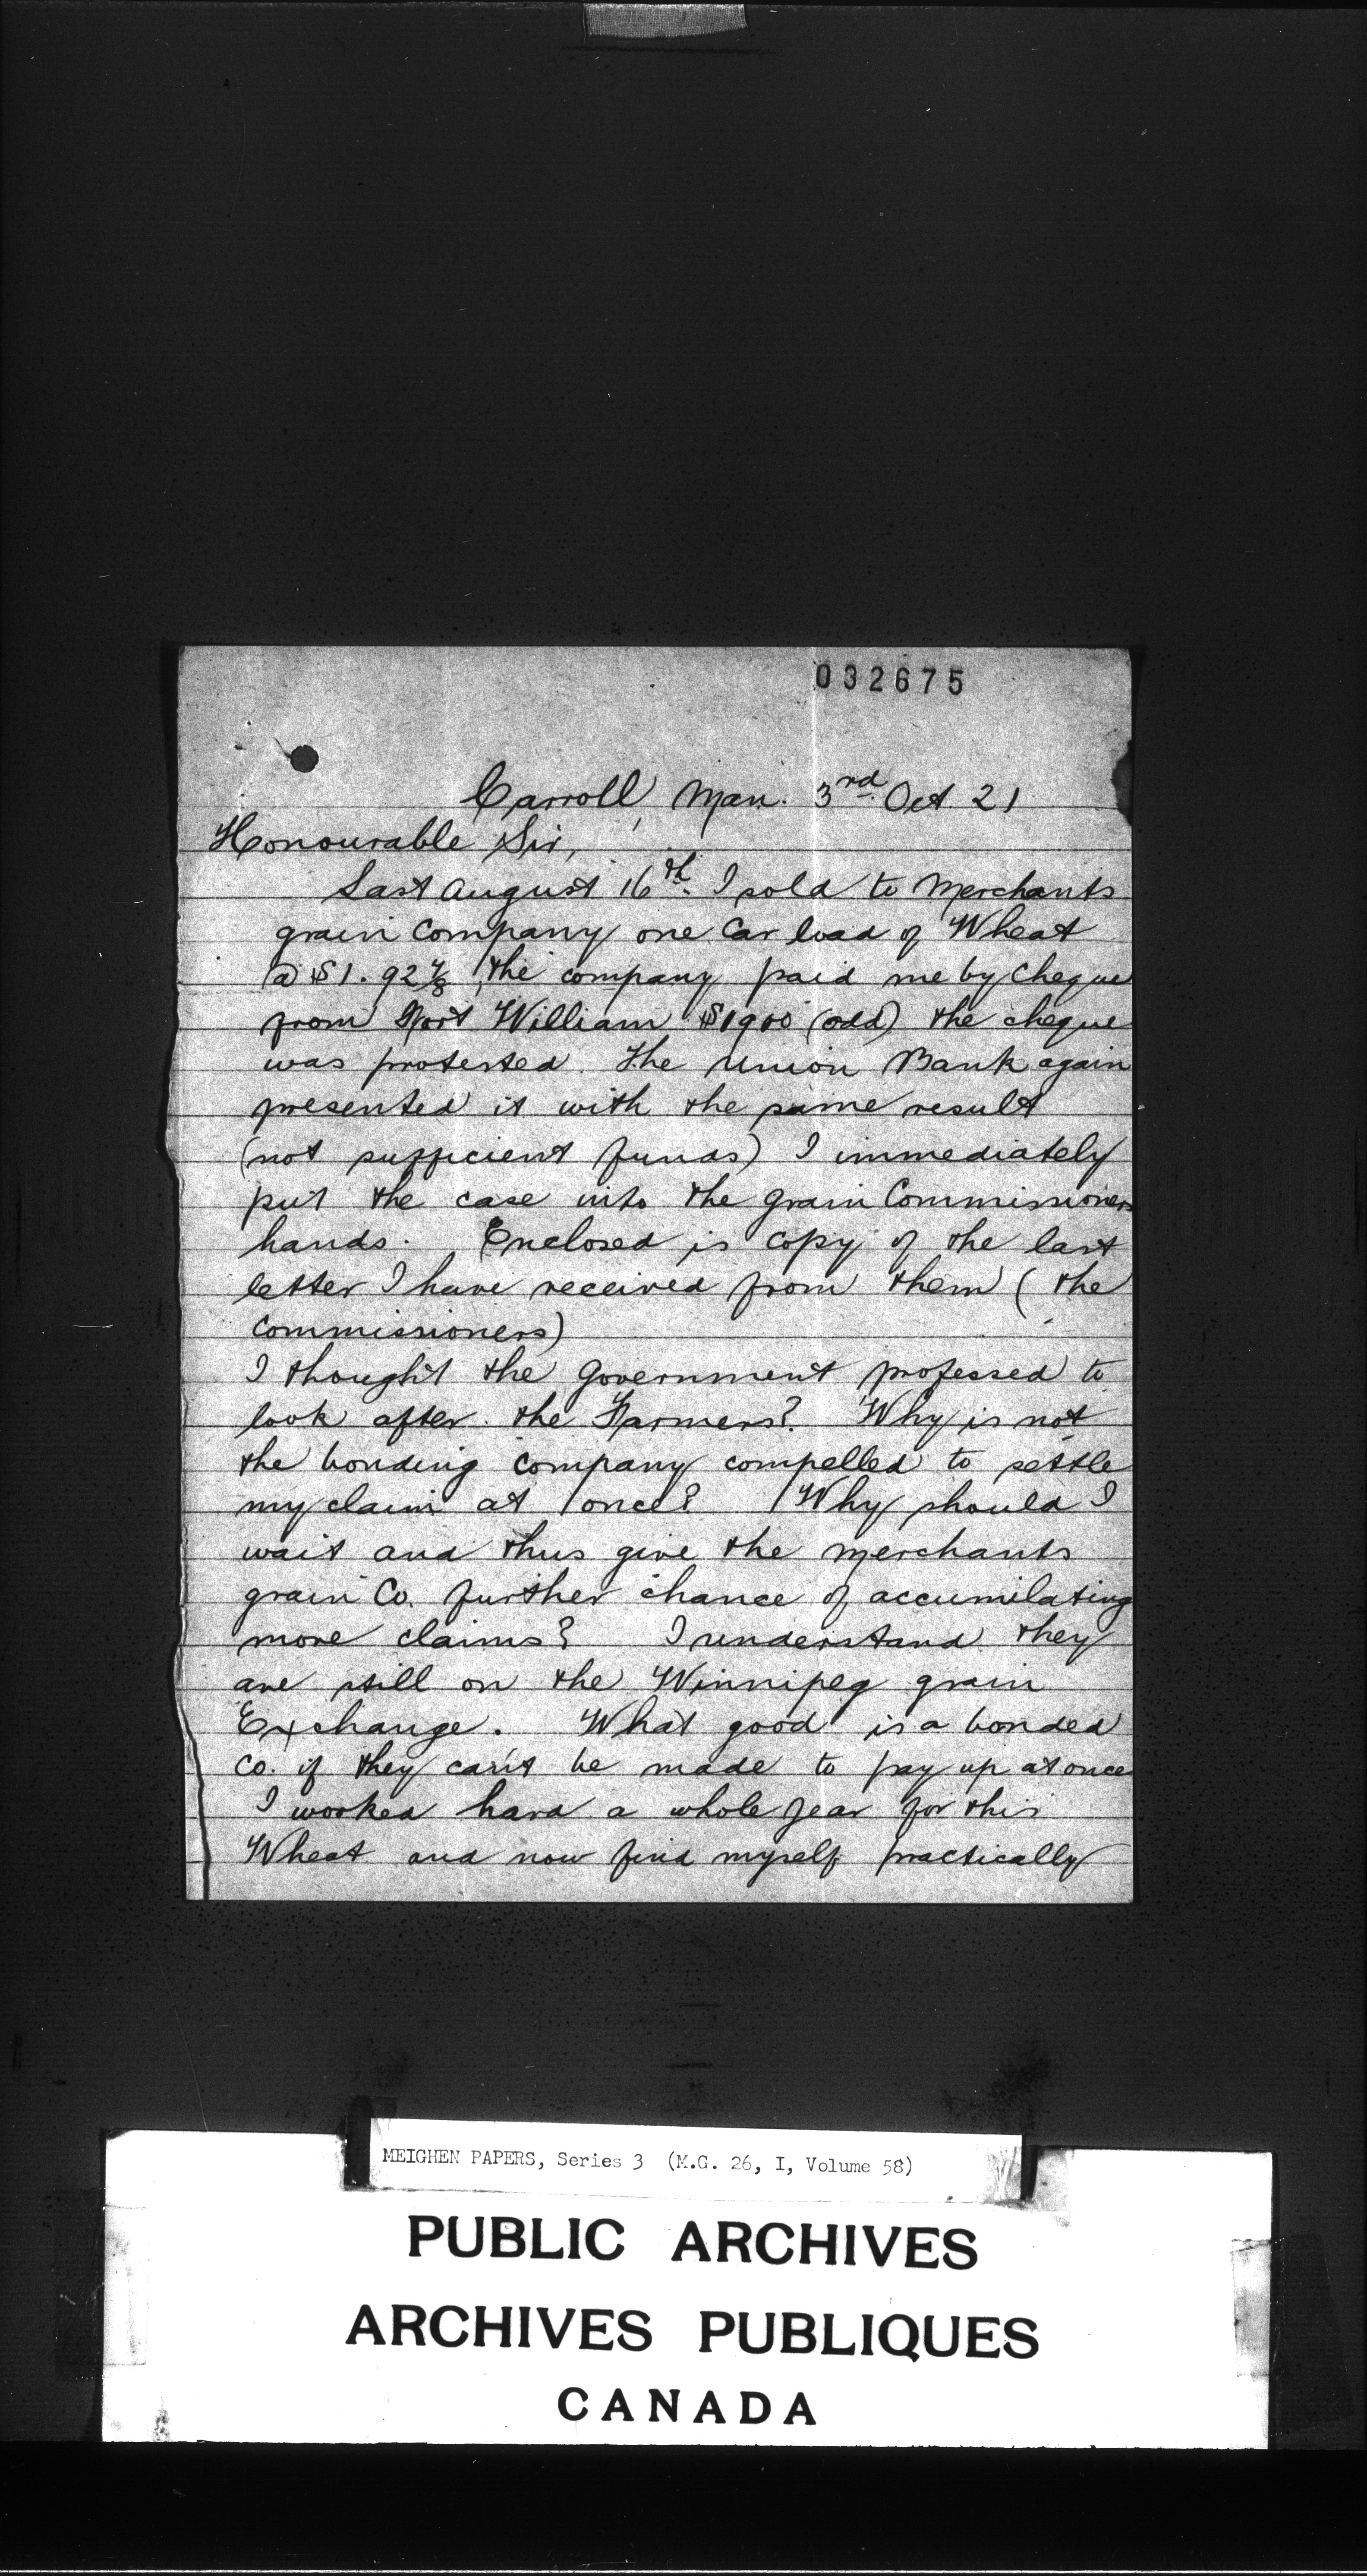 032675
Carroll, Man. 3rd Oct 21
Honourable Sir,
Last August 16th I sold to Merchants
grain Company one Car load of Wheat
@ $1.92⅞ the company paid me by Cheque
from Fort William $1900 (odd) the cheque
was protested. The Union Bank again
presented it with the same result
(not sufficient funds) I immediately
put the case into the Grain Commissioners
hands. Enclosed is copy of the last
letter I have received from them (the
Commissioners)
I thought the Government professed to
look after the Farmers? Why is not
the bonding company compelled to settle
my claim at once? Why should I
wait and thus give the Merchants
grain Co. further chance of accumilating
more claims? I understand they
are still on the Winnipeg grain
Exchange. What good is a bonded
Co. if they can't be made to pay up at once
I worked hard a whole year for this
Wheat and now find myself practically
MEIGHEN PAPERS, Series 3 (M.G. 26, I, Volume 58)
PUBLIC ARCHIVES
ARCHIVES PUBLIQUES
CANADA